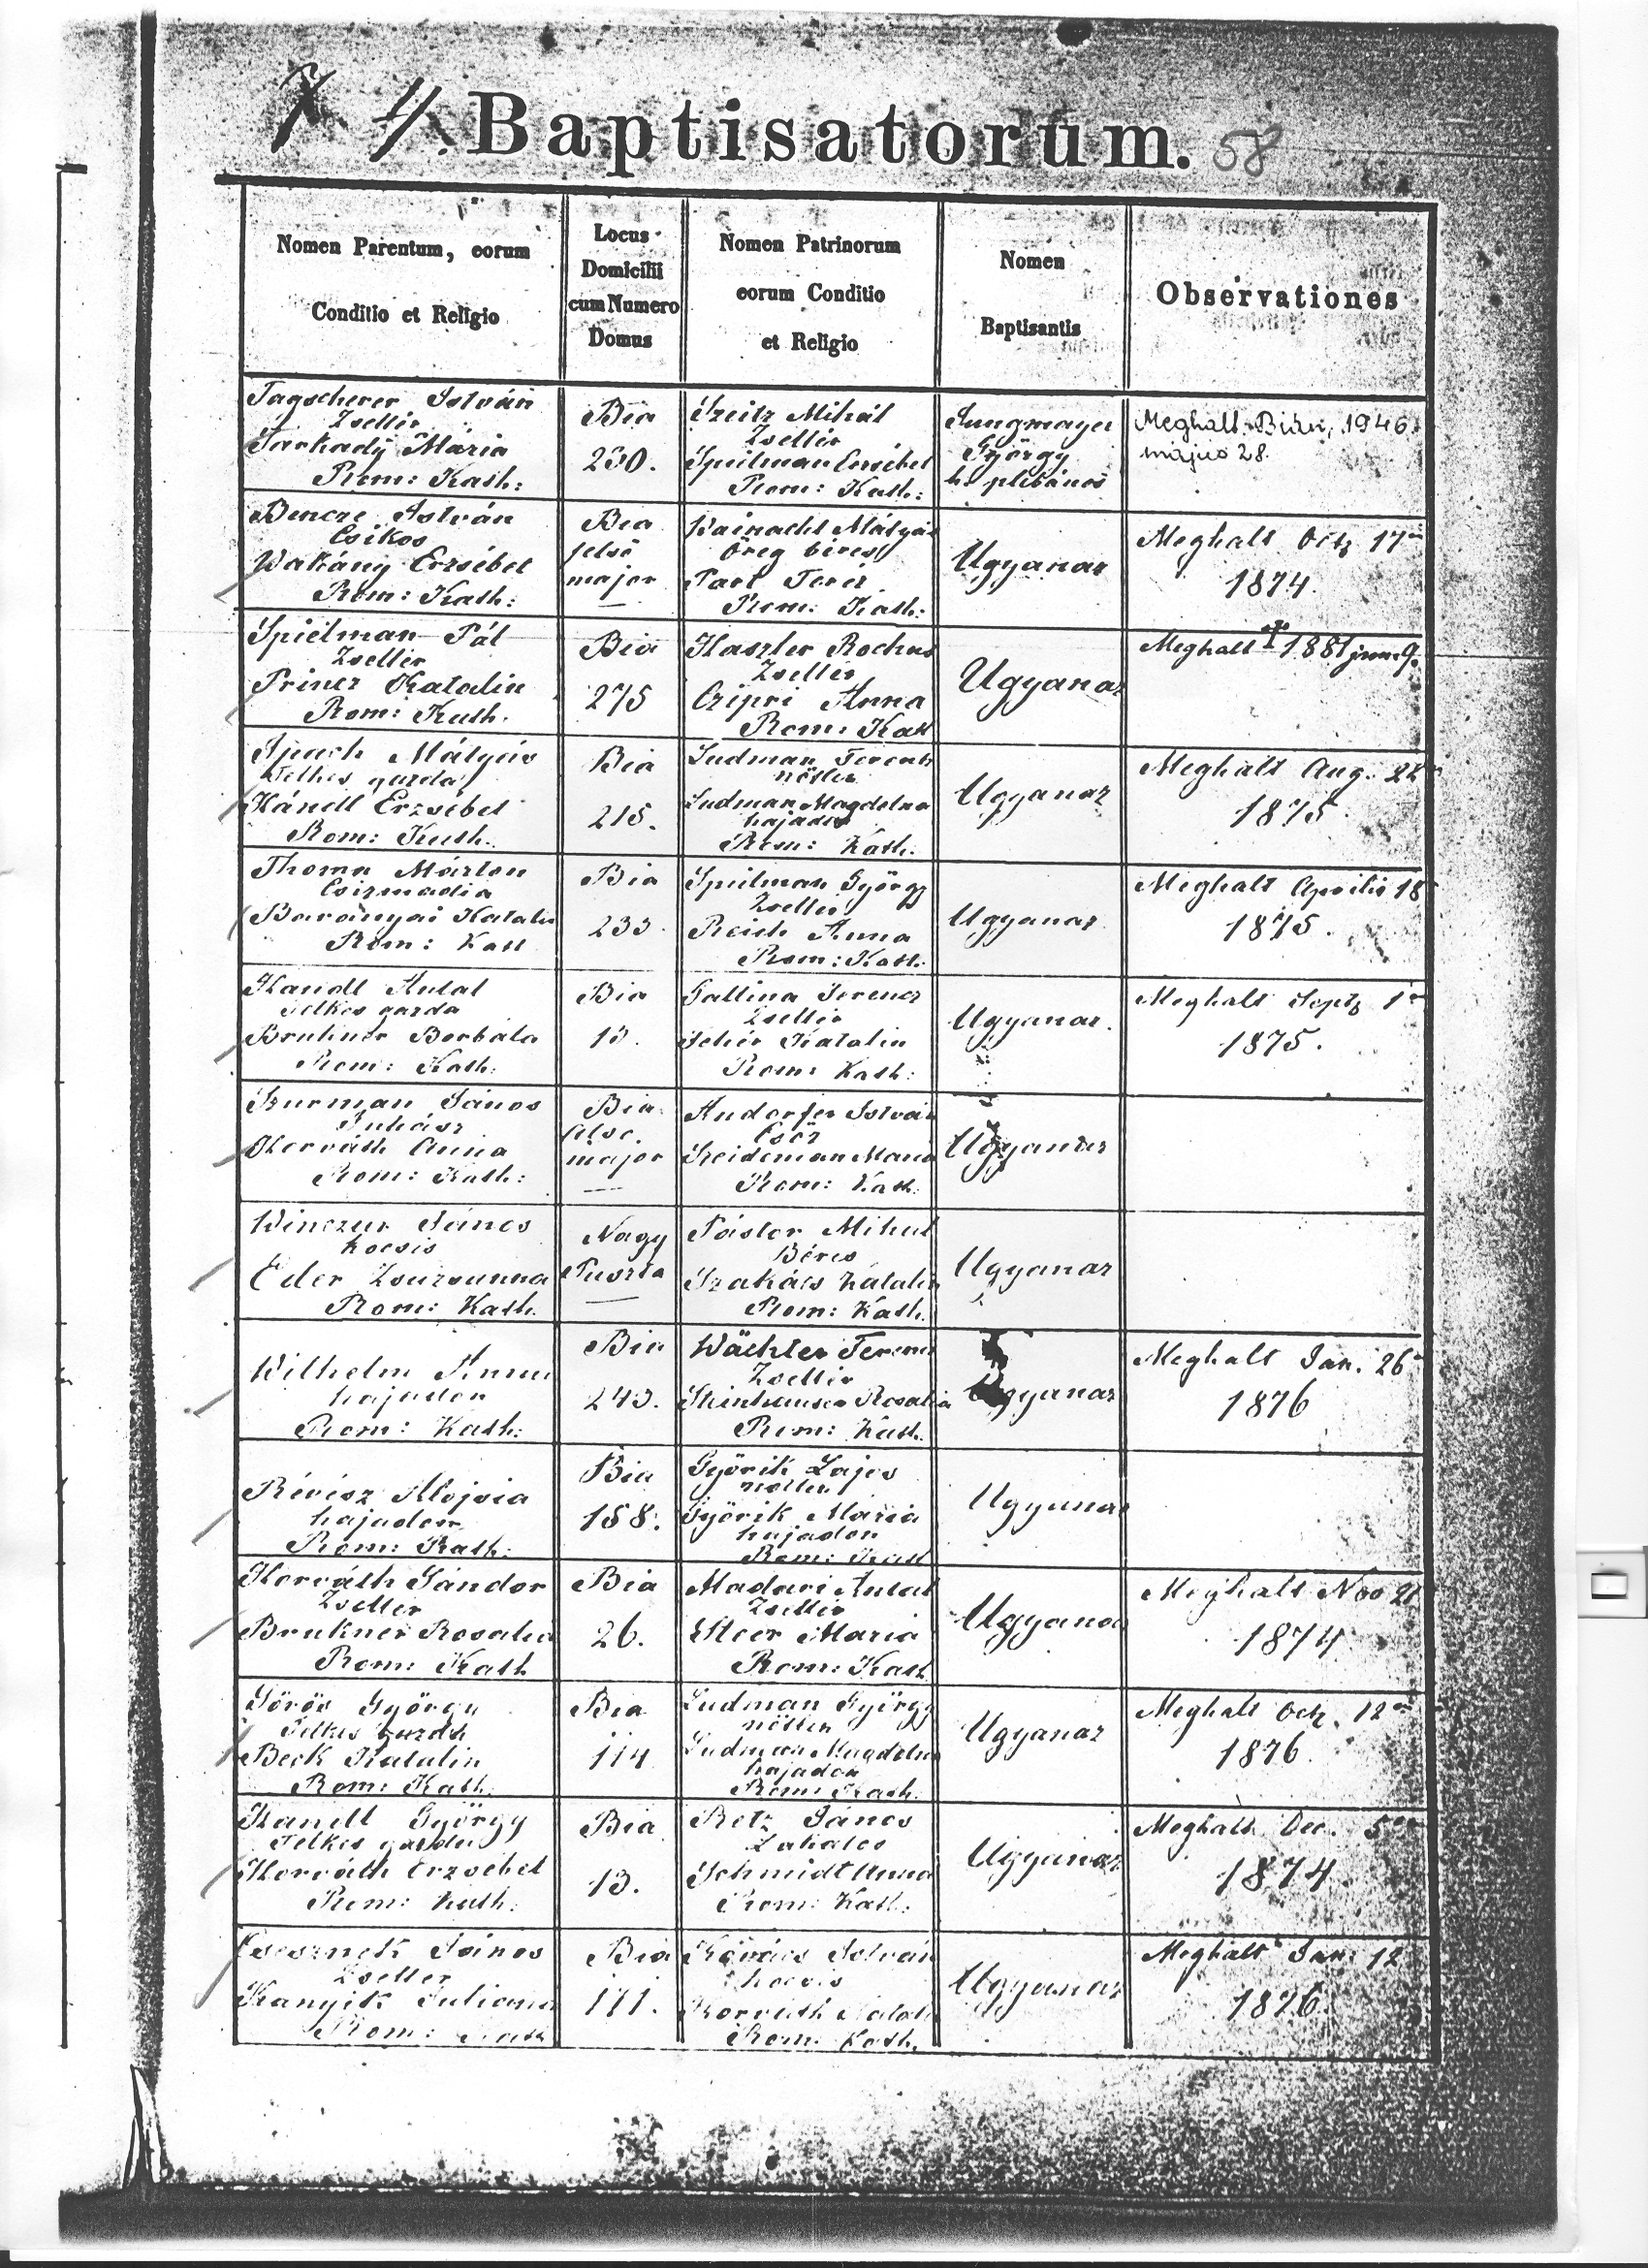 Baptisatorum. 58
Nomen Parentum, eorum
Conditio et Religio
Locus
Domicilii
cum Numero
Domus
Nomen Patrinorum
eorum Conditio
et Religio
Nomen
Baptisantis
Observationes
Tagscherer István
Zsellér
Tarkady Mária
Rom: Kath:
Bia
230.
Szeitz Mihál
Zsellér
Spielman Erzsébet
Rom: Kath:
Jungmayer
György
h. plébános
Meghalt Bián, 1946.
május 28.
Bencze István
Csikos
Wakány Erzsébet
Rom: Kath:
Bia
felső
major
Öreg béres
Teréz
Rom: Kath:
Ugyanaz
Meghalt Octz 17
1874.
Spielman Pál
Zsellér
Princz Katalin
Rom: Kath.
Bia
275
Haszler Rochus
Zsellér
Czipri Anna
Rom: Kath
Ugyanaz
Meghalt 1881 jun. 9.
Mátyás
Telkes gazda
Händl Erzsébet
Rom: Kath.
Bia
215.
Ludman Ferencz
nőtlen
Ludman Magdolna
hajadon
Rom: Kath.
Ugyanaz
Meghalt Aug. 22
1875.
Thoma Márton
Csizmadia
Baranyai Katalin
Rom: Kath
Bia
233.
Spielman György
Zsellér
Reich Anna
Rom: Kath.
Ugyanaz
Meghalt Aprilis 18
1875.
Handl Antal
Telkes gazda
Brukner Borbála
Rom: Kath:
Bia
13.
Gallina Ferencz
Zsellér
Fehér Katalin
Rom: Kath:
Ugyanaz.
Meghalt Septz 1
1875.
Szurman János
Juhász
Horváth Anna
Rom: Kath:
Bia
Alsó.
major
Andorfer István
Csősz
Szeideman Mária
Rom: Kath.
Ugyanaz
Winczur János
Kocsis
Eder Zsuzsanna
Rom: Kath.
Nagy
Puszta
Pásztor Mihál
Béres
Szakács Katalin
Rom: Kath.
Ugyanaz
Wilhelm Anna
hajadon
Rom: Kath:
Bia
243.
Wächter Ferencz
Zsellér
Steinhauser Rosalia
Rom: Kath.
Ugyanaz
Meghalt Jan. 26
1876
Révész Alojsia
hajadon
Rom: Kath:
Bia
158.
Györik Lajos
nőtlen
Györik Mária
hajadon
Rom: Kath
Ugyanaz
Horváth Sándor
Zsellér
Brukner Rosalia
Rom: Kath
Bia
26.
Madari Antal
Zsellér
Maria
Rom: Kath
Ugyanaz
Meghalt Nov 21
1874
György
Telkes gazda
Beck Katalin
Rom: Kath.
Bia
114
Ludman György
nőtlen
Ludman Magdolna
hajadon
Rom: Kath.
Ugyanaz
Meghalt Octz. 12
1876.
Handl György
Telkes gazda
Horváth Erzsébet
Rom: Kath.
Bia
13.
Retz János
Lakatos
Schmidt Anna
Rom: Kath.
Ugyanaz
Meghalt Dec. 5
1874.
Csesznek János
Zsellér
Kanyik Juliana
Rom: Kath
Bia
111.
Kovács István
Kocsis
Horváth Katalin
Rom. Kath.
Ugyanaz
Meghalt Jan. 12
1876.